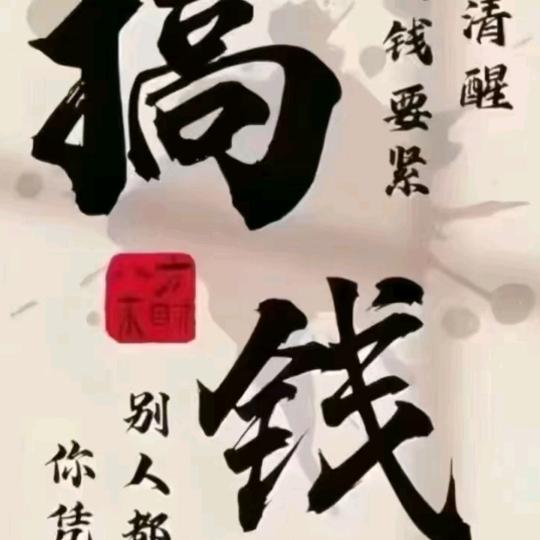 清醒
钱要紧
搞钱
别人都
你凭